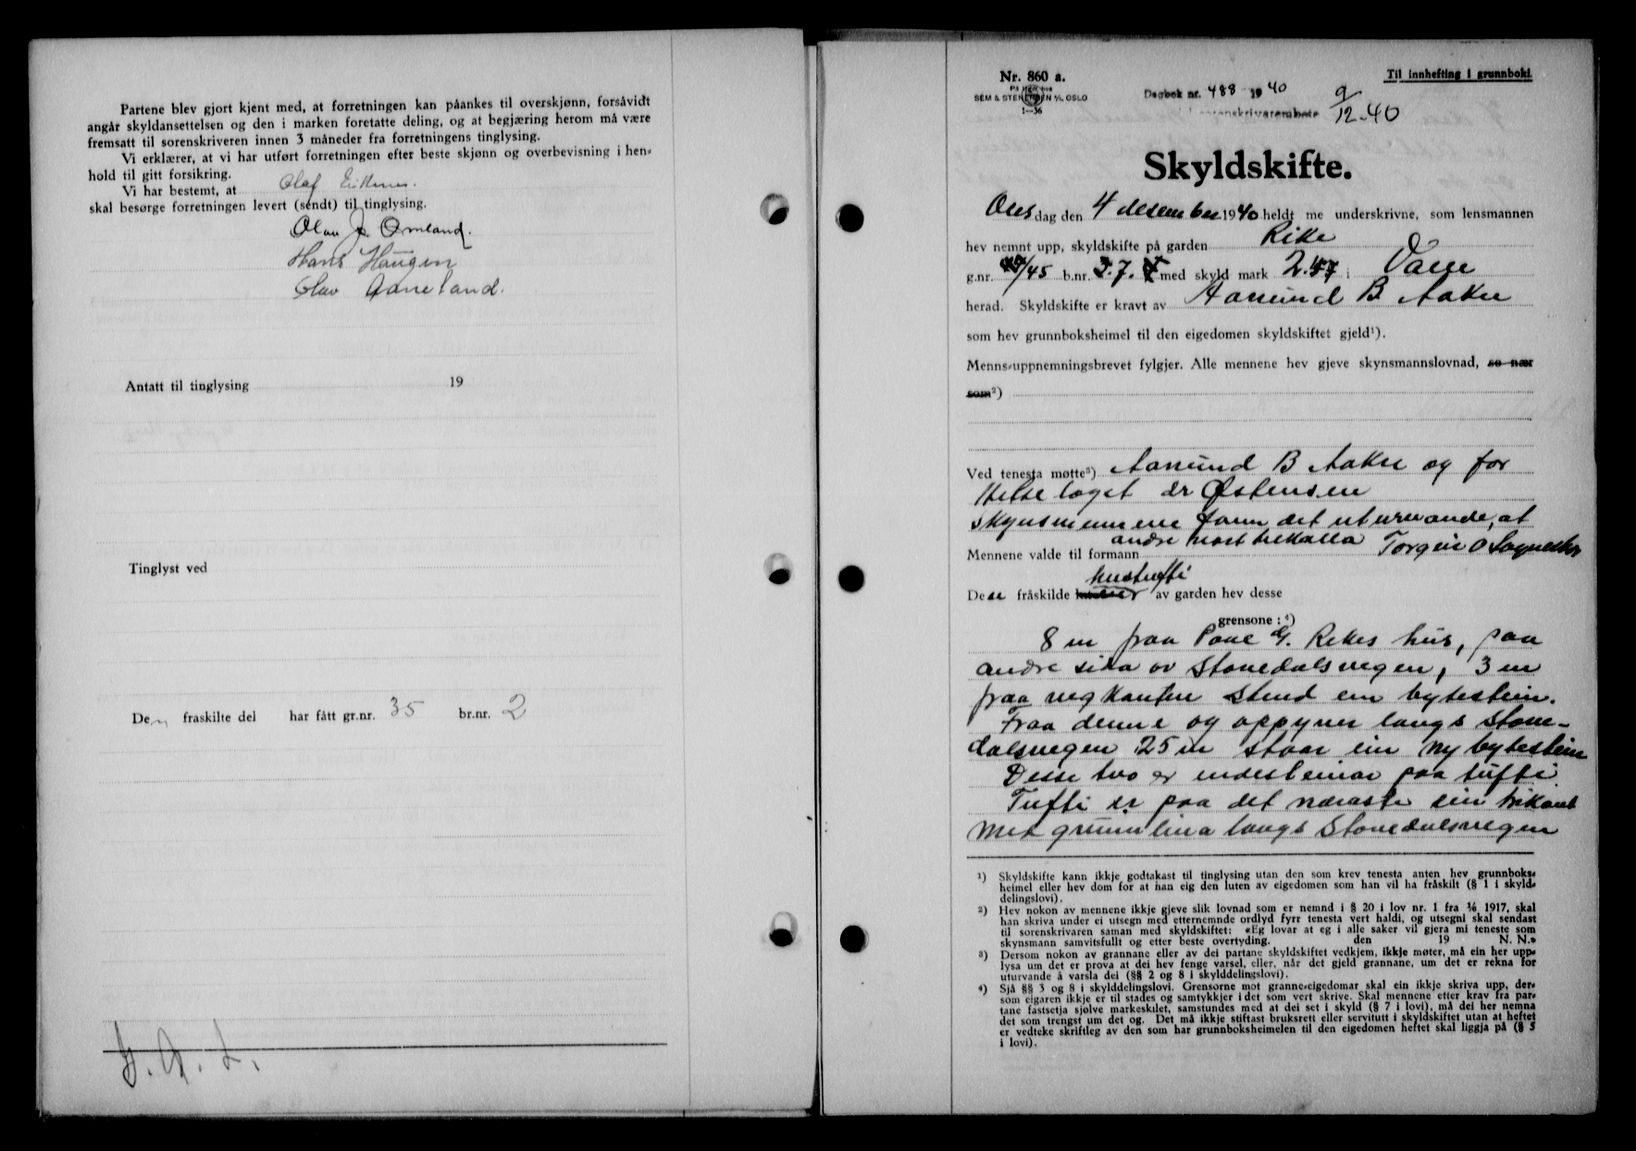 Partene blev gjort kjent med, at forretningen kan påankes til overskjønn, forsåvidt
angår skyldansettelsen og den i marken foretatte deling, og at begjæring herom må være
fremsatt til sorenskriveren innen 3 måneder fra forretningens tinglysing.
Vi erklærer, at vi har utført forretningen efter beste skjønn og overbevisning i hen-
hold til gitt forsikring.
Vi har bestemt, at Olaf
skal besørge forretningen levert (sendt) til tinglysing.
Olav Ormland.
Hans Haugen
Olav Aaneland.
Antatt til tinglysing 19
Tinglyst ved
Den fraskilte del har fått gr.nr. 35 br.nr. 2
Nr. 860 a.
SEM & STENERSEN A/S, OSLO
1—36
Til innhefting i grunnboki.
Dagbok nr. 488 1940
9/12-40
Skyldskifte.
Onsdag den 4 desember 1940 heldt me underskrivne, som lensmannen
hev nemnt upp, skyldskifte på garden Rike
g.nr. /45 b.nr. 2.7. med skyld mark 2.47 i Valle
herad. Skyldskifte er kravt av Aanund B Aakre
som hev grunnboksheimel til den eigedomen skyldskiftet gjeld¹).
Menns-uppnemningsbrevet fylgjer. Alle mennene hev gjeve skynsmannslovnad, so nær
som²)
Ved tenesta møtte³) Aanund B Aakre og for
Helselaget dr Østensen
skynsmennene fann det uturvande, at
andre vart tilkalla
Mennene valde til formann Torgeir O
hustufti
Den fråskilde av garden hev desse
grensone:⁴)
8 m fraa Paal G. Rikes hus, paa
andre sida av Stavedalsvegen, 3 m
fraa vegkanten stend ein bytestein.
Fraa denne og oppyver langs Stave-
dalsvegen 25 m staar ein ny bytestein
Desse tvo er endesteinar paa tufti
Tufti er paa det næraste ein trikant
med grunnlina langs Stavedalsvegen
¹) Skyldskifte kann ikkje godtakast til tinglysing utan den som krev tenesta anten hev grunnboks-
heimel eller hev dom for at han eig den luten av eigedomen som han vil ha fråskilt (§ 1 i skyld-
delingslovi).
²) Hev nokon av mennene ikkje gjeve slik lovnad som er nemnd i § 20 i lov nr. 1 fra 1/6 1917, skal
han skriva under ei utsegn med etternemnde ordlyd fyrr tenesta vert haldi, og utsegni skal sendast
til sorenskrivaren saman med skyldskiftet: «Eg lovar at eg i alle saker vil gjera mi teneste som
skynsmann samvitsfullt og etter beste overtyding. den 19 N. N.»
³) Dersom nokon av grannane eller av dei partane skyldskiftet vedkjem, ikkje møter, må ein her upp-
lysa um det er prova at dei hev fenge varsel, eller, når det gjeld grannane, um det er rekna for
uturvande å varsla dei (§§ 2 og 8 i skylddelingslovi).
⁴) Sjå §§ 3 og 8 i skylddelingslovi. Grensorne mot granne-eigedomar skal ein ikkje skriva upp, der-
som eigaren ikkje er til stades og samtykkjer i det som vert skrive. Skal mennene etter krav fra par-
tane fastsetja sjølve markeskilet, samstundes med at dei set i skyld (§ 7 i lovi), må dei her nemna
det som trengst um det og. Det må ikkje stiftast bruksrett eller servitutt i skyldskiftet utan at heftet
er vedteke skriftleg av den som har grunnboksheimelen til den eigedomen heftet skal liggja på (§ 5
i lovi).